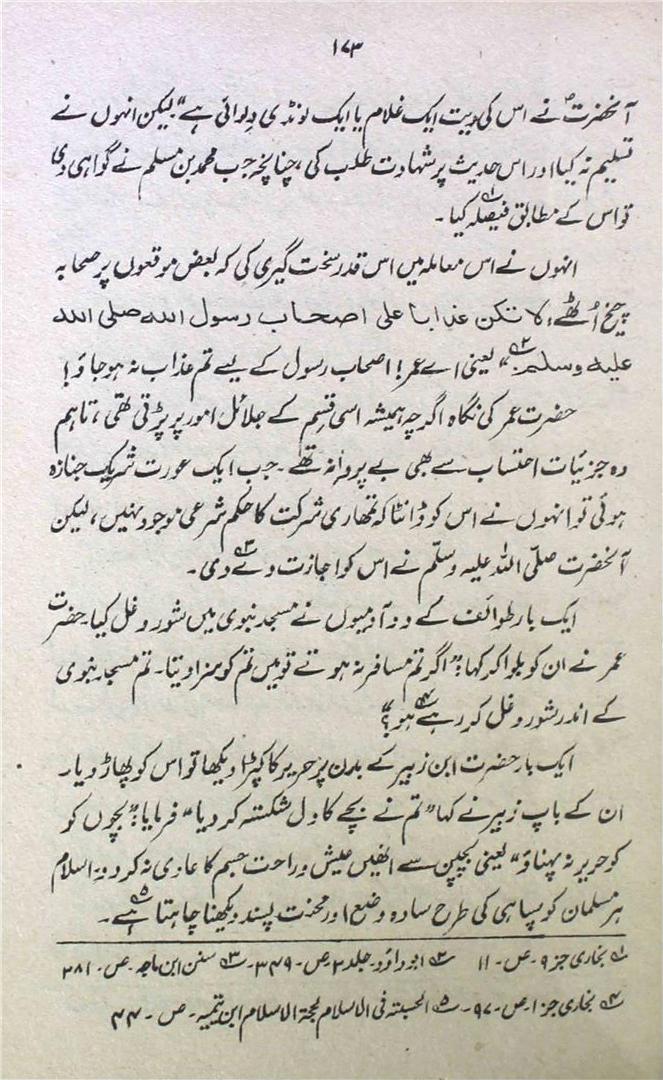 ۱۷۳
آنحضرتؐ نے اس کی دیت ایک غلام یا ایک لونڈی دلوائی ہے" لیکن انہوں نے
تسلیم نہ کیا اور اس حدیث پر شہادت طلب کی، چنانچہ جب محمد بن مسلم نے گواہی دی
تو اس کے مطابق فیصلہ کیا۔۱؎
انہوں نے اس معاملہ میں اس قدر سخت گیری کی کہ بعض موقعوں پر صحابہ
چیخ اُٹھے: لا تکن عذابا علی اصحاب رسول اللہ صلی اللہ
علیہ وسلم۲؎" یعنی اے عمر! اصحاب رسول کے لیے تم عذاب نہ ہو جاؤ!
حضرت عمر کی نگاہ اگرچہ ہمیشہ اسی قسم کے جلائل امور پر پڑتی تھی، تاہم
وہ جزئیات احتساب سے بھی بے پروا نہ تھے۔ جب ایک عورت شریک جنازہ
ہوئی تو انہوں نے اس کو ڈانٹا کہ تمھاری شرکت کا حکم شرعی موجود نہیں، لیکن
آنحضرت صلّی اللہ علیہ وسلّم نے اس کو اجازت دے دی۳؎۔
ایک بار طوائف کے دو آدمیوں نے مسجد نبوی میں شور و غل کیا۔ حضرت
عمر نے ان کو بلوا کر کہا: "اگر تم مسافر نہ ہوتے تو میں تم کو سزا دیتا۔ تم مسجد نبوی
کے اندر شور و غل کر رہے ہو؟"۴؎
ایک بار حضرت ابن زبیر کے بدن پر حریر کا کپڑا دیکھا تو اس کو پھاڑ دیا۔
ان کے باپ زبیر نے کہا "تم نے بچے کا دل شکستہ کر دیا" فرمایا: "بچوں کو
کو حریر نہ پہناؤ" یعنی بچپن سے انھیں عیش و راحت جسم کا عادی نہ کر دو۔ اسلام
ہر مسلمان کو سپاہی کی طرح سادہ وضع اور محنت پسند دیکھنا چاہتا ہے۵؎۔
۱؎ بخاری جز ۹۔ ص۔ ۱۱ ۲؎ ابوداؤد۔ جلد ۲۔ ص۔ ۳۴۹۔ ۳؎ سنن ابن ماجہ۔ ص۔ ۲۸۱
۴؎ بخاری جز ۱۔ ص۔ ۹۷۔ ۵؎ الحسبتہ فی الاسلام لحجۃ الاسلام ابن تیمیہ۔ ص۔ ۴۴